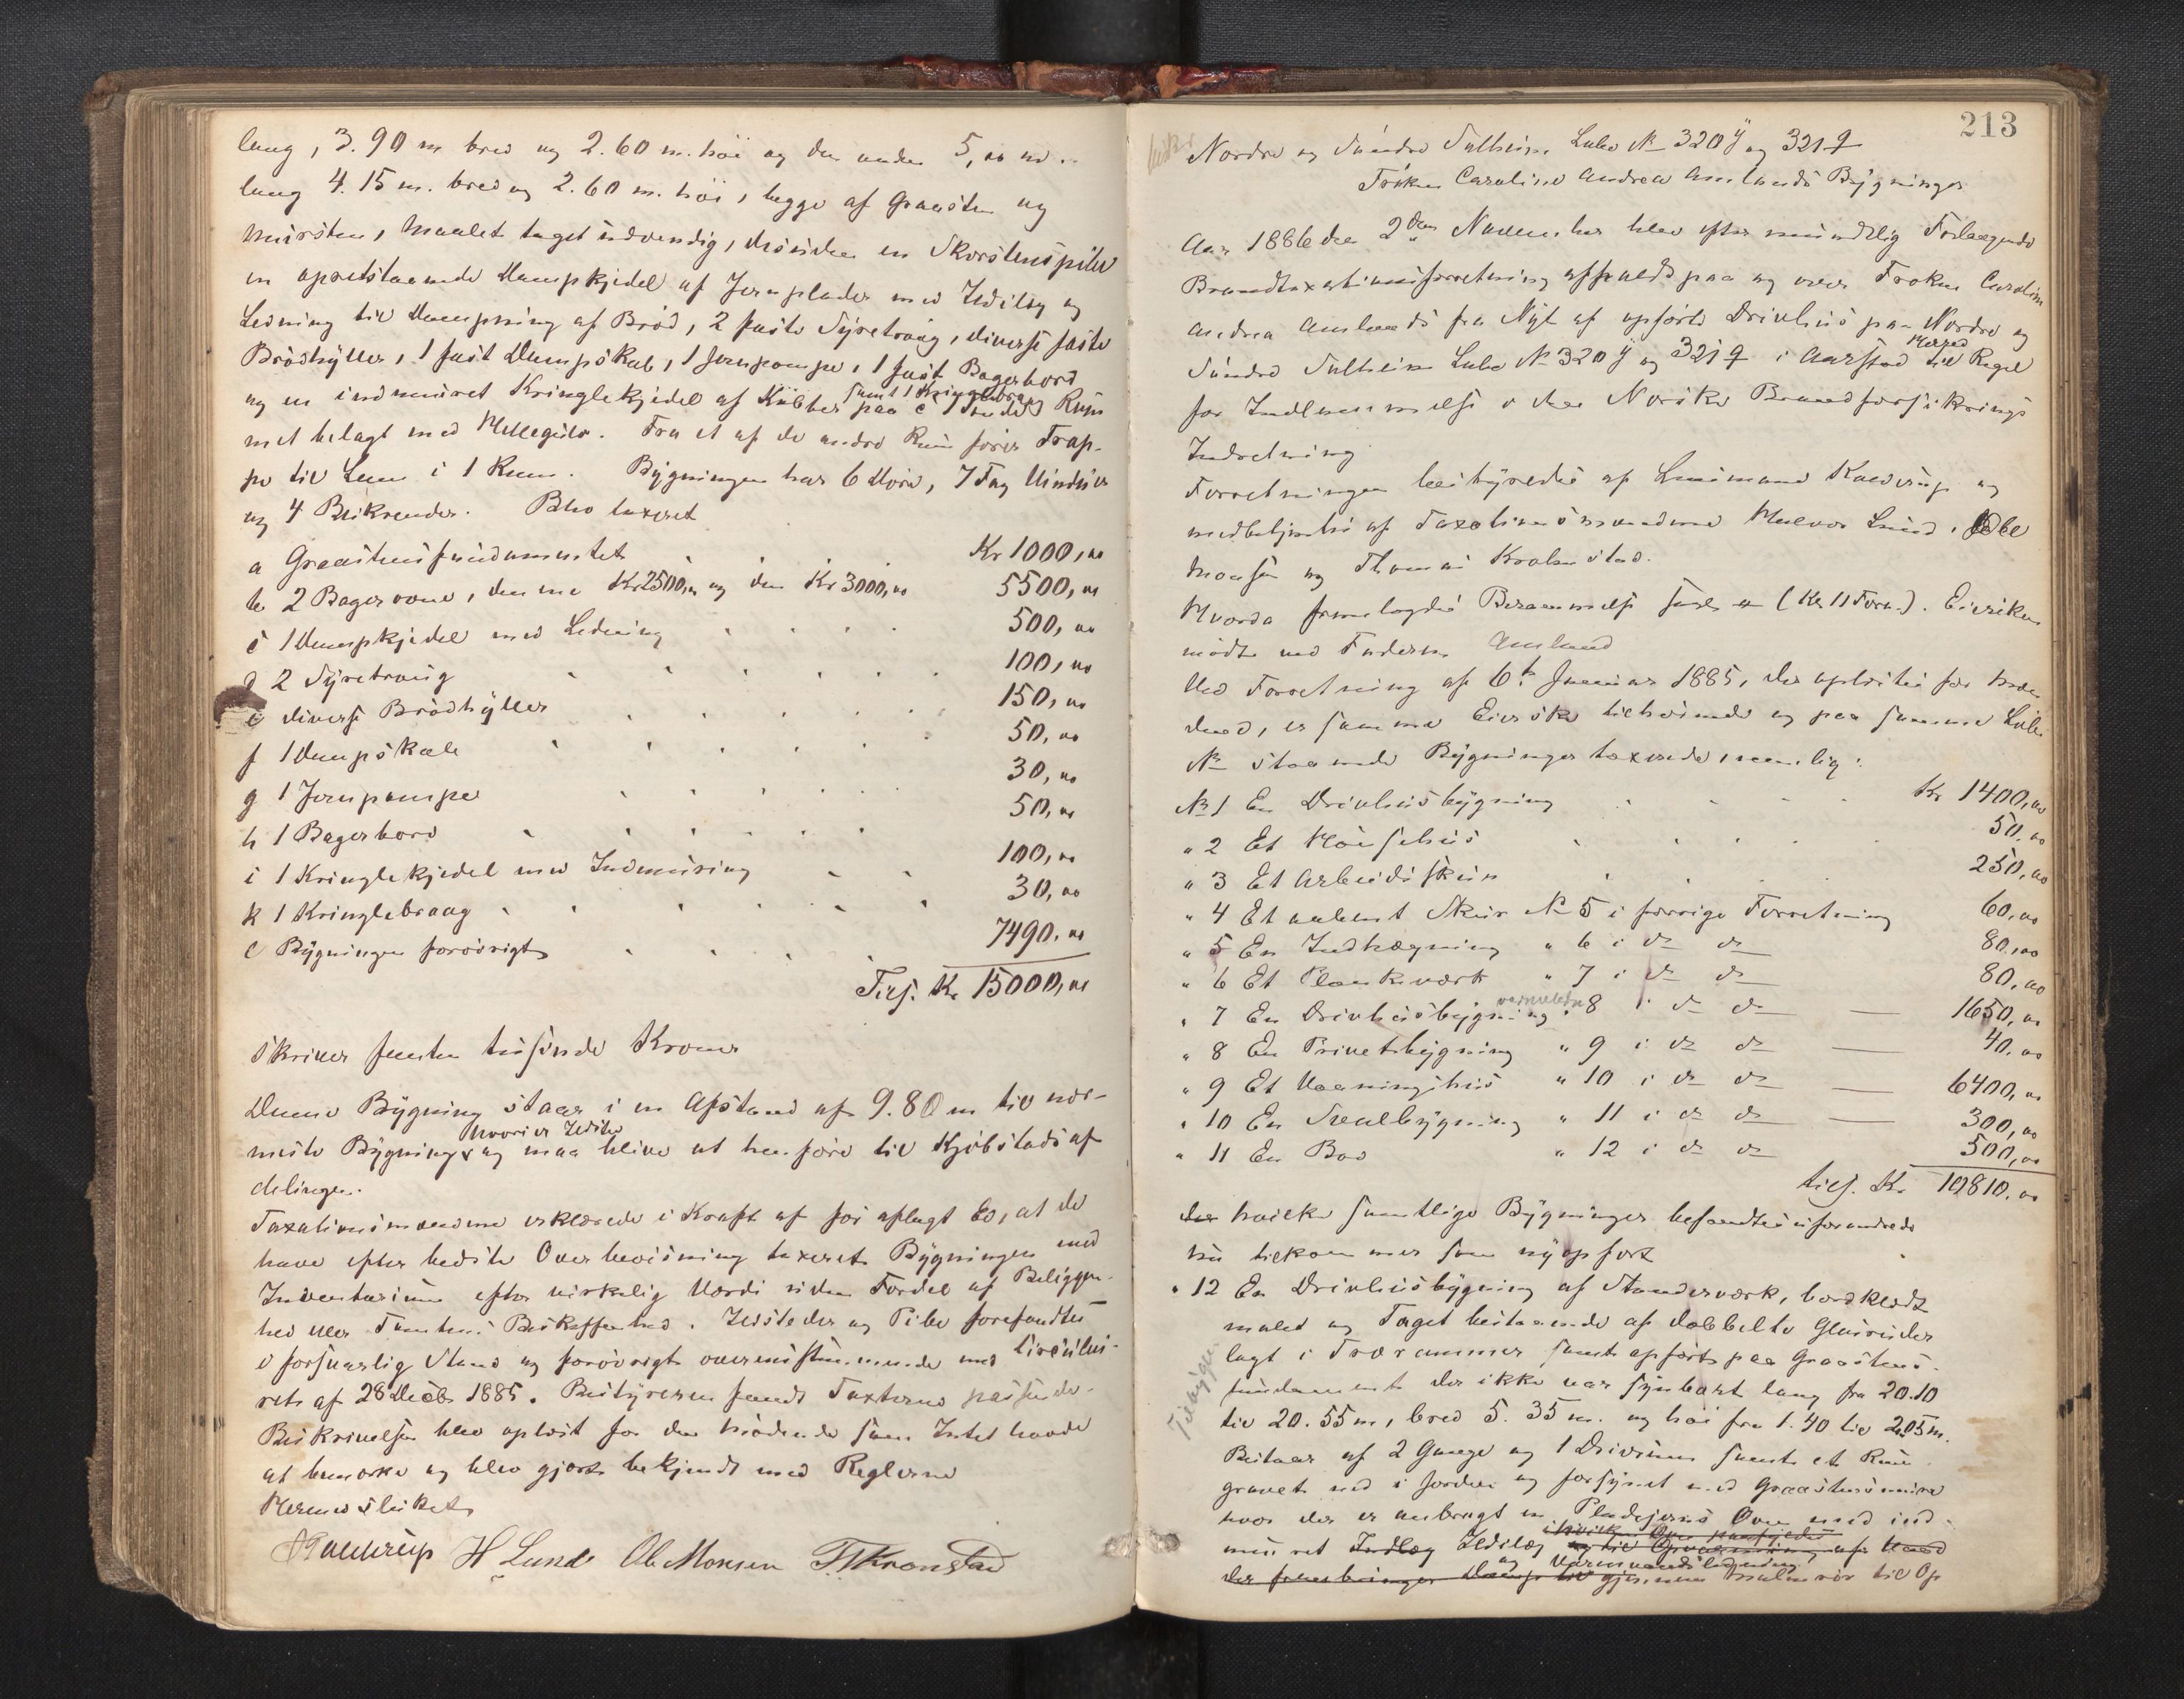 lang, 3.90 m bred og 2.60 m. høi og den anden 5,00 m.
lang 4.15 m. bred og 2.60 m. høi, begge af Graasten og
Mursten, Maalet taget indvendig, desuden en Skorstenspibe
en opretstaaende Dampkjedel af Jernplader med Ildsteg og
Ledning til Dampning af Brød, 2 faste Syretroug, diverse faste
Brødhyller, 1 fast Dampskab, 1 Jernpompe, 1 fast Bagerbord
samt 1 Kringlebraag
og en indmuret Kringlekjedel af Kobber paa Rum
met belagt med Helleguls. Fra et af de andre Rum fører Trap-
pe til Lem i 1 Rum. Bygningen har 6 Døre, 7 Fag Vinduer
og 4 Blikrender. Blev taxeret
a Graastensfundamentet Kr 1000,00
b 2 Bagerovne, denne Kr 2500,00 og den Kr 3000,00 5500,00
c 1 Dampkjedel med Ledning 500,00
d 2 Syretroug 100,00
e diverse Brødhyller 150,00
f 1 Dampskab 50,00
g 1 Jernpompe 30,00
h 1 Bagerbord 50,00
i 1 Kringlekjedel med Indmuring 100,00
k 1 Kringlebraag 30,00
l Bygningen forøvrigt 7490,00
Tils. Kr 15000,00
skriver femten tusinde Kroner
Denne Bygning staar i en Afstand af 9.80 m til nær-
hvori er Ildsted
meste Bygning og maa blive at henføre til Kjøbstadsaf
delingen.
Taxationsmændene erklærede i Kraft af før aflagt Ed, at de
have efter bedste Overbevisning taxeret Bygningen med
Inventarium efter virkelig Værdi uden Fordel af Beliggen-
hed eller Tomtens Beskaffenhed. Ildsteder og Pibe forefandtes
i forsvarlig Stand og forøvrigt overensstemmende med Circulai-
ret af 28 Decbr 1885. Bestyreren fandt Taxterne passende.
Beskrivelsen blev oplæst for den mødende som Intet havde
at bemærke og blev gjort bekjendt med Reglerne
Hermed sluttet
H Lund Ole Monsen T. Kronstad
213
Nordre og Søndre Solheim Løbe № 320 y og 321 q
Frøken Caroline Andrea Amlands Bygninger
Aar 1886 den 2den November blev efter mundtlig Forlangende
Brandtaxationsforretning afholdt paa og over Frøken Caroline
Andrea Amlands fra Nyt af opførte Drivhus paa Nordre og
Herred
Søndre Solheim Løbe № 320 y og 321 q i Aarstad til Regel
for Indlemmelse i den Norske Brandforsikrings
Indretning
Forretningen bestyredes af Lensmand Kaldrup og
medbetjentes af Taxationsmændene Halvor Lund, Ole
Monsen og Thomas Kronstad.
Hvorda fremlagdes Berammelse (Kl 11 Form.). Eiersken
mødte ved Faderen Amland
Ved Forretning af 6te Januar 1885, der oplæstes for
, er samme Eierske tilhørende og paa samme Løbe
№ staaende Bygninger taxerede, nemlig:
№ 1 En Drivhusbygning Kr 1400,00
" 2 Et Hønsehus 50,00
" 3 Et Arbeidsskur 250,00
" 4 Et aabent Skur № 5 i forrige Forretning 60,00
" 5 En Indhægning " 6 i do do 80,00
" 6 Et Plankværk " 7 i do do 80,00
" 7 En Drivhusbygning " 8 i do do 1650,00
" 8 En Privetbygning " 9 i do do 40,00
" 9 Et Vaaningshus " 10 i do do 6400,00
" 10 En Svalbygning " 11 i do do 300,00
" 11 En Bod " 12 i do do 500,00
tils. Kr 10810,00
hvilke samtlige Bygninger befandtes uforandrede
nu tilkommer som nyopført
" 12 En Drivhusbygning af Stenderværk, bordklædt
malet og Taget bestaaende af dobbelte Glasruder
lagt i Trærammer samt opført paa Graastens-
fundament der ikke var synbart lang fra 20.10
til 20.55 m, bred 5.35 m. og høi fra 1.40 til 2.05 m.
Bestaar af 2 Gange og 1 Drivrum samt et Rum
gravet ned i Jorden og forsynet med Graastensmure
hvor der er anbragt en Pladejerns Ovn med ind-
muret Indlæg Ildsted og til Opvarmning af Vand
og Varmvandsledning
der frembringer Damp til gjennem Malmrør til Op